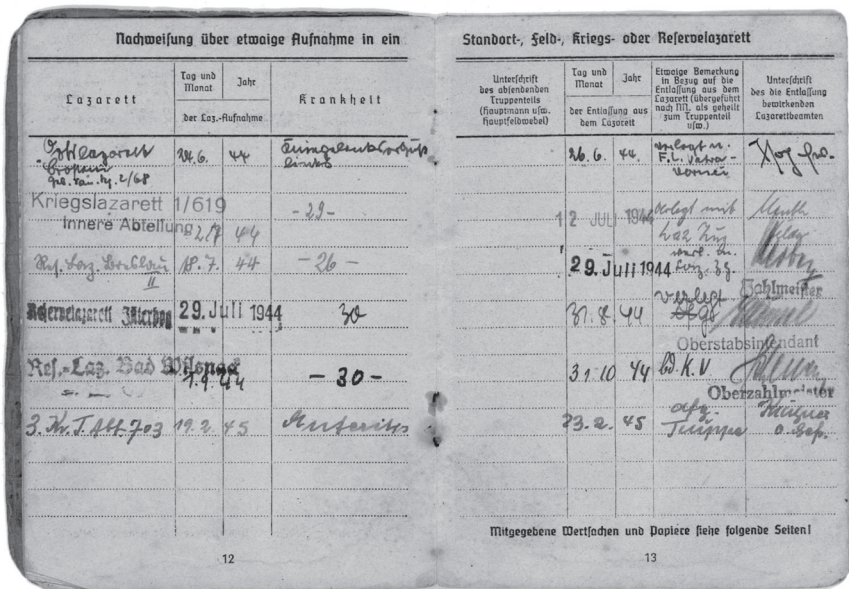 Nachweisung über etwaige Aufnahme in ein
Lazarett
Tag und
Monat
Jahr
der Laz.-Aufnahme
Krankheit
24.6. 44
links
Kriegslazarett 1/619
Innere Abteilung
44
-29-
Res. Laz. Breslau
II
18.7. 44
-26-
Reservelazarett Jüterbog
29. Juli 1944
30
Res.-Laz. Bad Wilsnack
1.9.44
-30-
3. Kr. T. Abt. 703
19.2. 45
12
Standort-, Feld-, Kriegs- oder Reservelazarett
Unterschrift
des absendenden
Truppenteils
(Hauptmann usw.
Hauptfeldwebel)
Tag und
Monat
Jahr
der Entlassung aus
dem Lazarett
Etwaige Bemerkung
in Bezug auf die
Entlassung aus dem
Lazarett (übergeführt
nach N., als geheilt
zum Truppenteil
usw.)
Unterschrift
des die Entlassung
bewirkenden
Lazarettbeamten
26.6. 44.
verlegt n.
F.L. Vatra-
12 JULI 1944
verlegt mit
Laz Zug
29. Juli 1944
Zahlmeister
verlegt
31.8. 44
Oberstabsintendant
31.10 44
bd. K.V
Oberzahlmeister
23.2. 45
Truppe
Mitgegebene Wertsachen und Papiere siehe folgende Seiten!
13